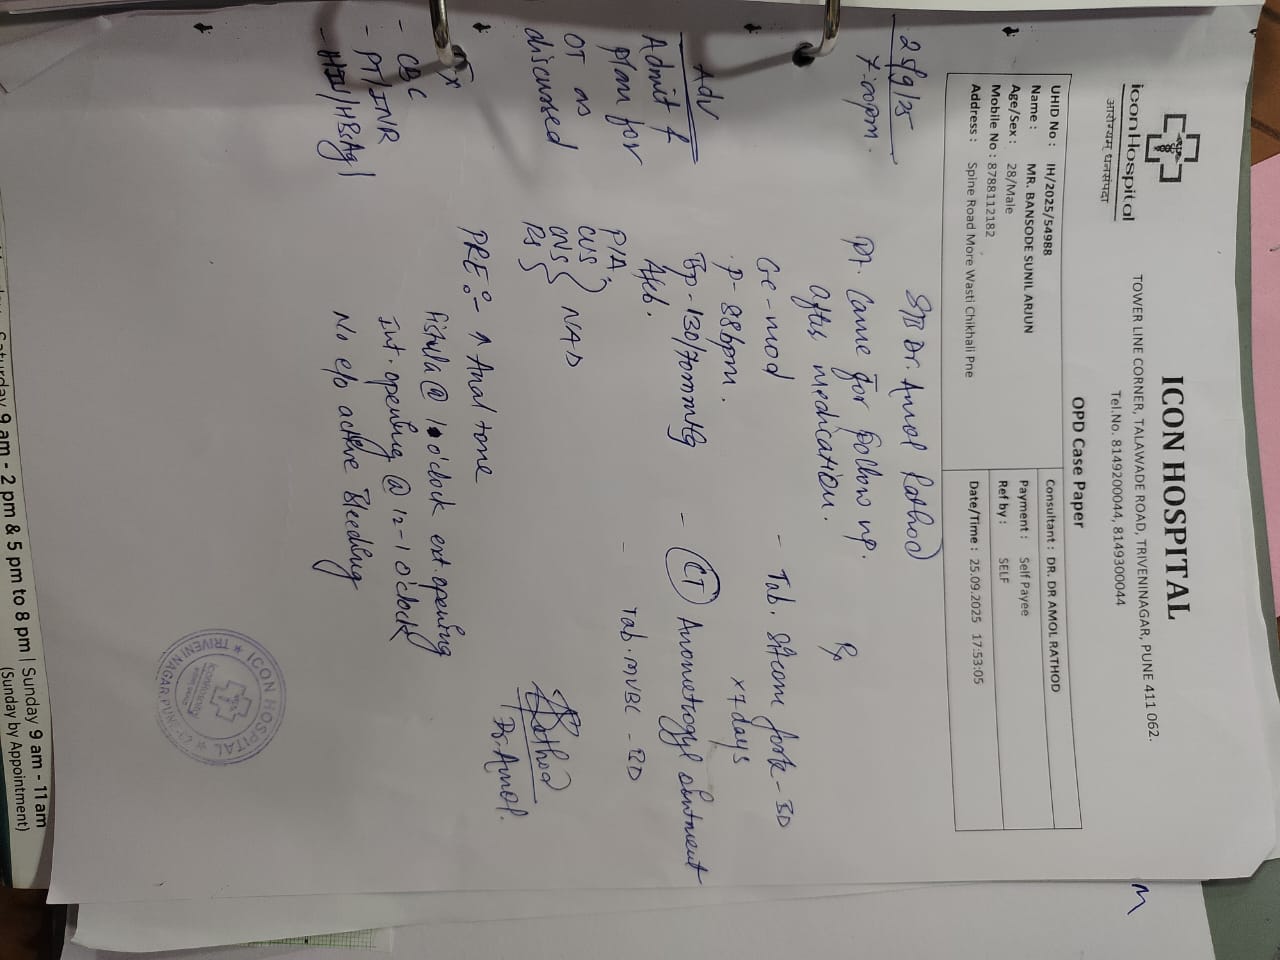 iconHospital
आरोग्यम् धनसंपदा
ICON HOSPITAL
TOWER LINE CORNER, TALAWADE ROAD, TRIVENINAGAR, PUNE 411 062.
Tel.No. 8149200044, 8149300044
OPD Case Paper
UHID No : IH/2025/54988
Name : MR. BANSODE SUNIL ARJUN
Age/Sex : 28/Male
Mobile No : 8788112182
Address : Spine Road More Wasti Chikhali Pne
Consultant : DR. DR AMOL RATHOD
Payment : Self Payee
Ref by : SELF
Date/Time : 25.09.2025 17:53:05
25/9/25
7:00pm.
S/B Dr. Amol Rathod
Pt. Came for follow up.
after medication.
Gc - mod
P - 88bpm.
Bp - 130/70mmHg
Afeb.
P/A
CVS
CNS
RS
NAD
P.R.E :- ↑ Anal tone
fistula @ 1 o'clock ext. opening
Int. opening @ 12-1 o'clock
No e/o active Bleeding
Rx
- Tab. Sitcom forte - BD
x 7 days
- CT Anometrogyl ointment
- Tab. MVBC - BD
Rathod
Dr. Amol.
Adv
Admit &
plan for
OT as
discussed
- CBC
- PT/INR
- HIV/HBsAg
ICON HOSPITAL
TRIVENI NAGAR PUNE-62
Saturday 9 am - 2 pm & 5 pm to 8 pm | Sunday 9 am - 11 am
(Sunday by Appointment)